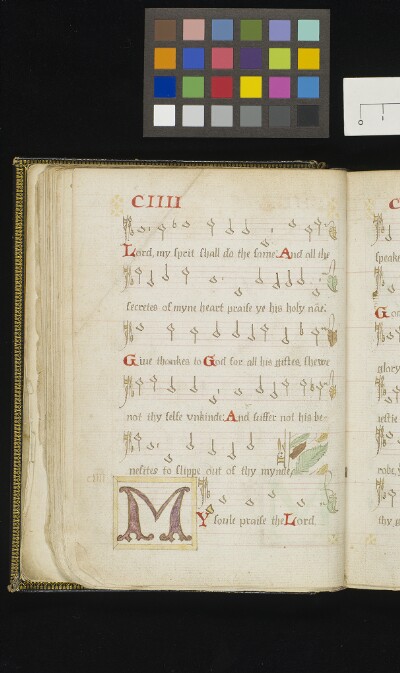 CIIII
Lord, my sprit shall do the same. And all the
secretes of myne heart praise ye his holy nāe.
Giue thankes to God for all his giftes, shewe
not thy selfe vnkinde: And suffer not his be-
nefites to slippe out of thy mynde,
ciiii
MY soule praise the Lord
C
speake
Go
glory
iestie
robe,
thy
0
1